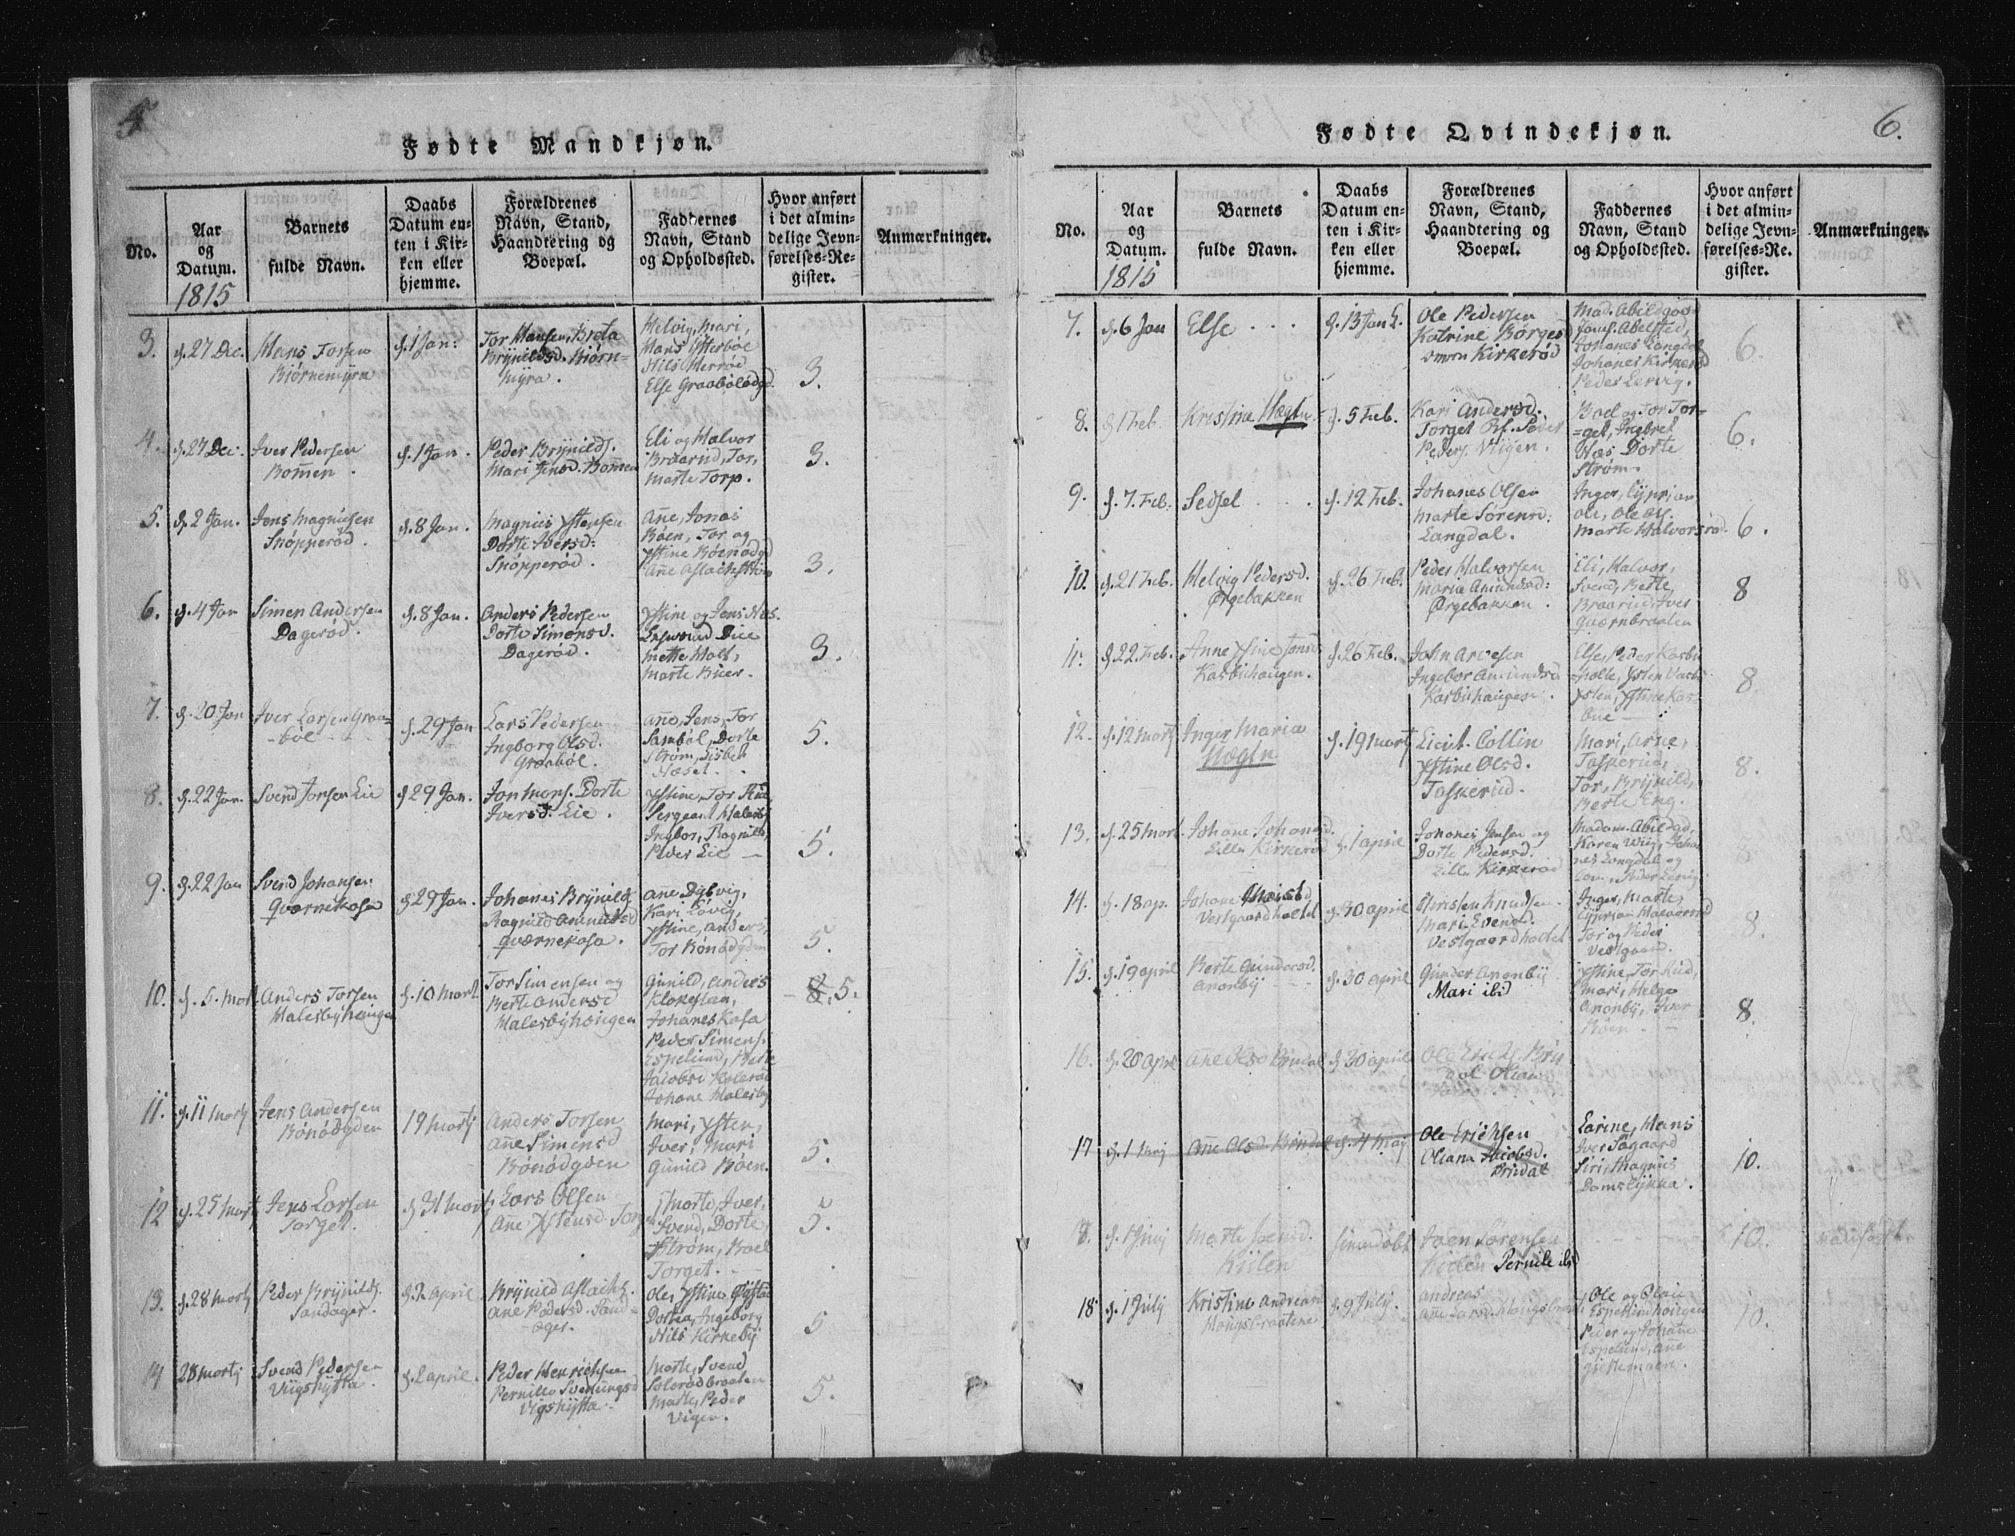 5
Fødte Mandkjøn.
No.
Aar og Datum.
1815
Barnets fulde Navn.
Daabs Datum enten i Kirken eller hjemme.
Forældrenes Navn, Stand, Haandtering og Boepæl.
Faddernes Navn, Stand og Opholdssted.
Hvor anført i det almindelige Jevnførelses-Register.
Anmærkninger.
3.
d. 27 Dec.
Hans Torsen
Biørnemyra
d. 1 Jan:
Tor Hansen, Breta
Brynildsd. Biørn-
myra.
Helvig, Mari,
Hans Ysterbøl
Nils Herrød
Else Graabølødgd.
3.
4.
d. 27 Dec.
Iver Pedersen
Bommen.
d. 1 Jan.
Peder Brynilds.
Mari Jensd. Bommen
Eli og Halvor
Braarud, Tor,
Marte Torp.
3.
5.
d. 2 Jan.
Jens Magnusen
Snøpperød.
d. 8 Jan.
Magnus Ystensen
Dorte Iversd:
Snøpperød.
Ane, Jonas
Bøen, Tor og
Ystine Bøenødgd
Ane Aslachstrøm
3.
6.
d. 4 Jan
Simen Andersen
Dagerød.
d. 8 Jan.
Anders Pedersen
Dorte Simensd.
Dagerød.
Ystine og Jens Næs.
Due
Mette Holt,
Marte Buer.
3.
7.
d. 20 Jan
Iver Larsen Graa-
-bøl
d. 29 Jan
Lars Pedersen
Ingborg Olsd.
Graabøl.
Ane, Jens, Tor
Sambøl, Dorte
Strøm, Lisbeth
Næset.
5.
8.
d. 22 Jan.
Svend Jonsen Lie
d 29 Jan.
Jon Mons. Dorte
Iversd. Lie.
Ystine, Tor Rud,
Sergeant Halesby
Ingbor, Ragnild,
Peder Lie
5.
9.
d. 22 Jan
Svend Johansen
Qværnekasa
d 29 Jan.
Johanes Brynilds.
Ragnild Amundsd
Qværnekasa.
Ane Dybvig,
Kari Løvig,
Ystine, Anders,
Tor Bønødgden
5.
10.
d. 5. Mart.
Anders Torsen
Halesbyhaugen
d. 10 Mart.
Tor Simensen og
Berte Andersd
Halesbyhaugen
Gunild, Anders
Klokeslan,
Johanes Kasa
Peder Simens.
Espelund, Berte
Jacobsd Kolerød
Johane Halesby
8. 5.
11.
d. 11 Martj
Jens Andersen
Bønødgden
19 Martj
Anders Torsen
Ane Simensd
Bønødgden
Mari, Ysten,
Iver, Mari
Gunild Bøen.
5.
12
d. 25 Mart
Jens Larsen
Torget.
d 31 Mart.
Lars Olsen
Ane Ystensd Torget
Marte, Iver,
Svend, Dorte
Strøm, Boel
Torget.
5.
13.
d. 28 Martj
Peder Brynilds.
Sandager.
d. 2 April
Brynild Aslachs.
Ane Pedersd. Sand-
-ager.
Ole, Ystine
Dortea, Ingeborg
Nils Kirkeby
5
14
28 Martj
Svend Pedersen
Vigshytta.
d. 2 april.
Peder Henrichsen
Pernille Svenungsd
Vigshytta.
Marte, Svend
Solerødbraaten
Marte, Peder
Vigen.
5.
6.
Fødte Qvindekjøn.
No.
Aar og Datum.
1815
Barnets fulde Navn.
Daabs Datum enten i Kirken eller hjemme.
Forældrenes Navn, Stand, Haandtering og Boepæl.
Faddernes Navn, Stand og Opholdssted.
Hvor anført i det almindelige Jevnførelses-Register.
Anmærkninger.
7.
d. 6 Jan
Else
d. 13 Jan.
Ole Pedersen
Katrine Børges
Kirkerød
Mad. Abildgos
Abelsted,
Johanes Langdal
Johanes Kirkerød
Peder Lervig.
6.
8.
d 1 Feb.
Kristina Uægte
d. 5 Feb.
Kari Andersd.
Torget Bf. Peder
Peders. Viigen.
Boel og Tor Tor-
=get, Ingbret
Næs Dorte
Strøm.
6.
9.
d. 7. Feb.
Sedsel
d. 12 Feb.
Johanes Olsen
Marte Sørensd:
Langdal.
Inger, Cyprian
Ole, Ole
Marte Halvorsrød.
6.
10.
d. 21 Feb.
Helvig Pedersd.
Ørgebakken
d. 26 Feb.
Peder Halvorsen
Maria Amundsd:
Ørgebakken.
Eli, Halvor,
Svend, Berte
Braarud, Iver
Qværnbraaten
8
11.
d. 22. Feb.
Anne Ystine Jonsd
Kasbuhaugen.
d. 26 Feb.
John Arvesen
Ingebor Amundsd
Kasbuhaugen.
Else, Peder Kasbu
Holte, Ysten
Ysten, Ystine Kas-
bue
8.
12.
d. 12 Martj
Inger Maria
Uægte
d. 19 Martj
Lieut. Collin
Ystine Olsd.
Taskerud.
Mari, Arne,
Taskerud,
Tor, Brynild,
Berte Eng.
8.
13.
d. 25 Mart
Johane Johansd.
Lille Kirkerød
d. 1 april
Johanes Jensen og
Dorte Pedersd.
Lille Kirkerød
Madam. Abildgd,
Karen Wiig, Joha-
nes Langdal og
Peder Lervig
14.
d. 18 ap.
Johane Christd
Vestgaardholtet
d. 30 april
Christen Knudsen
Mari Evensd.
Vestgaardholtet
Inger, Marte,
Cyprian Halvorsrød
Tor og Peder
Vestgaard.
8.
15.
d. 19 april
Berte Gundersd.
Anonby
d. 30 april
Gunder Anonby
Mari ibid
Ystine, Tor Rud,
Mari, Helge
Anonby, Iver
Bøen
8.
16.
d. 20 April
Ane Olsd Brudal
d. 30 april
Ole Erichs. Bru
dal Oliana
17
d. 1 Maj
Ane Olsd. Brudal
d. 4 Maj
Ole Erichsen
Oliana Jacobsd.
Brudal
Larine, Hans
Iver Søgaard
Siri, Magnus
Damslykka.
10.
d. 1 Junj
Marte Joensd.
Kiilen
Joen Sørensen
Kiilen Pernile ibid
10.
18
d. 1 July
Kristine Andreasd
Haugsbraatene
d. 9 July.
Andreas
Ane Larsd. Haugsbraat
Ole og Olau
Espelundhaugen
Peder og Johane
Espelund, Ane
10.